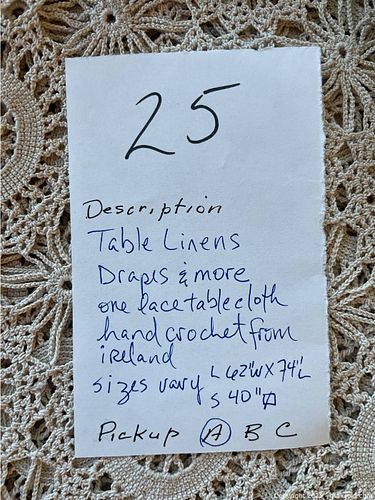 25
Description
Table Linens
Drapes & more
one lace tablecloth
hand crochet from
ireland
sizes vary L 62"W X 74"L
S 40"
Pickup A B C